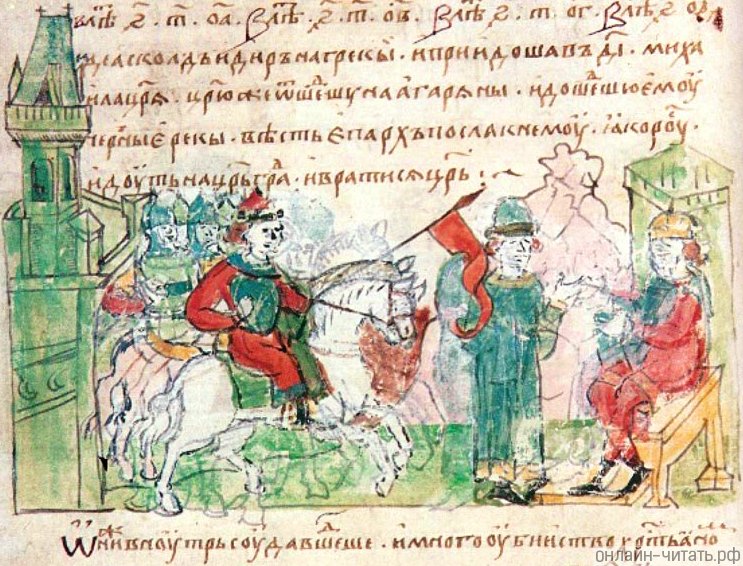 влѣ ҂ѕ҃ . т҃ . о҃а . Влѣ ҂ѕ҃ . т҃ . о҃в . Влѣ ҂ѕ҃ . т . ог . Влѣ ҂ѕ҃
ще асколдъ и диръ на грекы . и приидоша въ д҃і . миха
ила цр҃я . цр҃ю же ѿшешу на агаряны . и дошешю емоу
черные рекы . вѣсть епархъ посла к немоу . яко роу
идоуть на цр҃ьгра . и вратися цр҃ь :
Ѡни же вноутрь соуда вшеше . и много оубииство крстьяно
онлайн-читать.рф